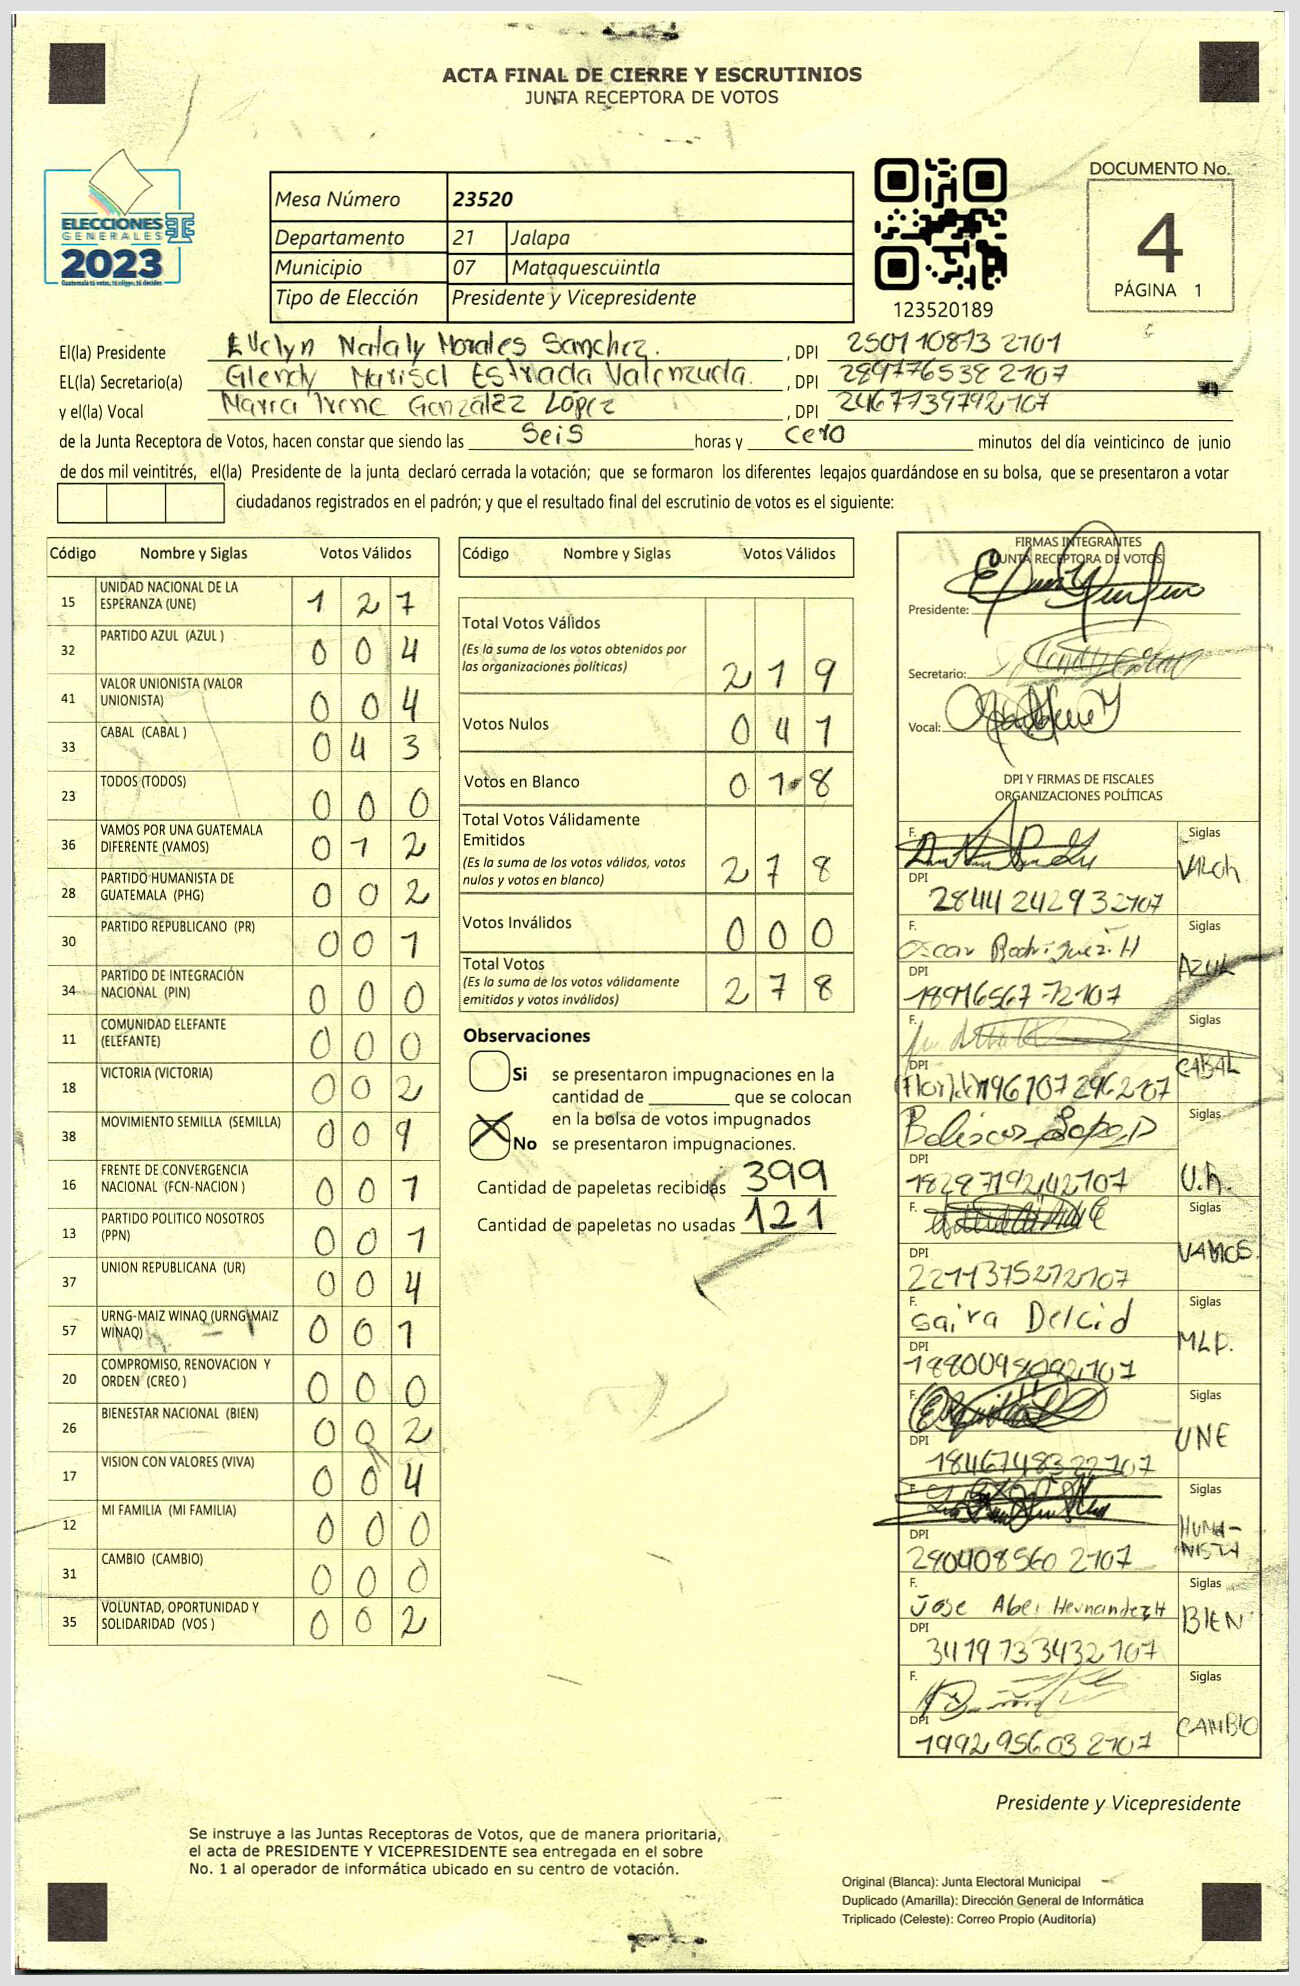 ACTA FINAL DE CIERRE Y ESCRUTINIOS
JUNTA RECEPTORA DE VOTOS
ELECCIONES
GENERALES
2023
Guatemala tú votas, tú eliges, tú decides
Mesa Número 23520
Departamento 21 Jalapa
Municipio 07 Mataquescuintla
Tipo de Elección Presidente y Vicepresidente
123520189
DOCUMENTO No.
4
PÁGINA 1
El(la) Presidente Evelyn Nataly Morales Sanchez. , DPI 2501 10873 2101
EL(la) Secretario(a) Glendy Marisol Estrada Valenzuela. , DPI 289776538 2107
y el(la) Vocal Maria Irene González López , DPI 2467739792107
de la Junta Receptora de Votos, hacen constar que siendo las seis horas y cero minutos del día veinticinco de junio
de dos mil veintitrés, el(la) Presidente de la junta declaró cerrada la votación; que se formaron los diferentes legajos quardándose en su bolsa, que se presentaron a votar
ciudadanos registrados en el padrón; y que el resultado final del escrutinio de votos es el siguiente:
Código Nombre y Siglas Votos Válidos
15 UNIDAD NACIONAL DE LA ESPERANZA (UNE) 1 2 7
32 PARTIDO AZUL (AZUL ) 0 0 4
41 VALOR UNIONISTA (VALOR UNIONISTA) 0 0 4
33 CABAL (CABAL ) 0 4 3
23 TODOS (TODOS) 0 0 0
36 VAMOS POR UNA GUATEMALA DIFERENTE (VAMOS) 0 1 2
28 PARTIDO HUMANISTA DE GUATEMALA (PHG) 0 0 2
30 PARTIDO REPUBLICANO (PR) 0 0 1
34 PARTIDO DE INTEGRACIÓN NACIONAL (PIN) 0 0 0
11 COMUNIDAD ELEFANTE (ELEFANTE) 0 0 0
18 VICTORIA (VICTORIA) 0 0 2
38 MOVIMIENTO SEMILLA (SEMILLA) 0 0 9
16 FRENTE DE CONVERGENCIA NACIONAL (FCN-NACION ) 0 0 1
13 PARTIDO POLITICO NOSOTROS (PPN) 0 0 1
37 UNION REPUBLICANA (UR) 0 0 4
57 URNG-MAIZ WINAQ (URNG-MAIZ WINAQ) 0 0 1
20 COMPROMISO, RENOVACION Y ORDEN (CREO ) 0 0 0
26 BIENESTAR NACIONAL (BIEN) 0 0 2
17 VISION CON VALORES (VIVA) 0 0 4
12 MI FAMILIA (MI FAMILIA) 0 0 0
31 CAMBIO (CAMBIO) 0 0 0
35 VOLUNTAD, OPORTUNIDAD Y SOLIDARIDAD (VOS ) 0 0 2
Código Nombre y Siglas Votos Válidos
Total Votos Válidos
(Es la suma de los votos obtenidos por
las organizaciones políticas) 2 1 9
Votos Nulos 0 4 1
Votos en Blanco 0 1 8
Total Votos Válidamente
Emitidos
(Es la suma de los votos válidos, votos
nulos y votos en blanco) 2 7 8
Votos Inválidos 0 0 0
Total Votos
(Es la suma de los votos válidamente
emitidos y votos inválidos) 2 7 8
Observaciones
Si se presentaron impugnaciones en la
cantidad de que se colocan
en la bolsa de votos impugnados
No se presentaron impugnaciones.
Cantidad de papeletas recibidas 399
Cantidad de papeletas no usadas 121
FIRMAS INTEGRANTES
JUNTA RECEPTORA DE VOTOS
Presidente:
Secretario:
Vocal:
DPI Y FIRMAS DE FISCALES
ORGANIZACIONES POLÍTICAS
F. Siglas
VALOR
DPI
2844 24293 2107
F. Oscar Rodriguez. H Siglas
AZUL
DPI
F. Siglas
CABAL
DPI
F. Siglas
DPI
1828719242107 U.R.
F. Siglas
VAMOS.
DPI
2211375272107
F. Saira Delcid Siglas
MLP.
DPI
1880098092107
F. Siglas
UNE
DPI
1846748322107
F. Siglas
HUMA-
NISTA
DPI
280408560 2107
F. Jose Abel Hernandez H Siglas
BIEN
DPI
3419 73 3432 107
F. Siglas
CAMBIO
DPI
1992 95603 2107
Presidente y Vicepresidente
Se instruye a las Juntas Receptoras de Votos, que de manera prioritaria,
el acta de PRESIDENTE Y VICEPRESIDENTE sea entregada en el sobre
No. 1 al operador de informática ubicado en su centro de votación.
Original (Blanca): Junta Electoral Municipal
Duplicado (Amarilla): Dirección General de Informática
Triplicado (Celeste): Correo Propio (Auditoría)